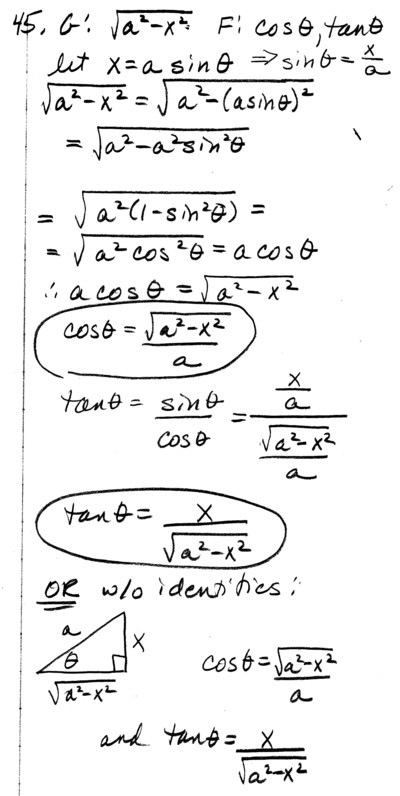 45. G: √(a²-x²) F: cosθ, tanθ
let x = a sinθ ⇒ sinθ = x/a
√(a²-x²) = √(a²-(asinθ)²)
= √(a²-a²sin²θ)
= √(a²(1-sin²θ)) =
= √(a²cos²θ) = a cosθ
∴ a cosθ = √(a²-x²)
cosθ = √(a²-x²)/a
tanθ = sinθ/cosθ = (x/a)/(√(a²-x²)/a)
tanθ = x/√(a²-x²)
OR w/o identities:
a θ x
√(a²-x²)
cosθ = √(a²-x²)/a
and tanθ = x/√(a²-x²)